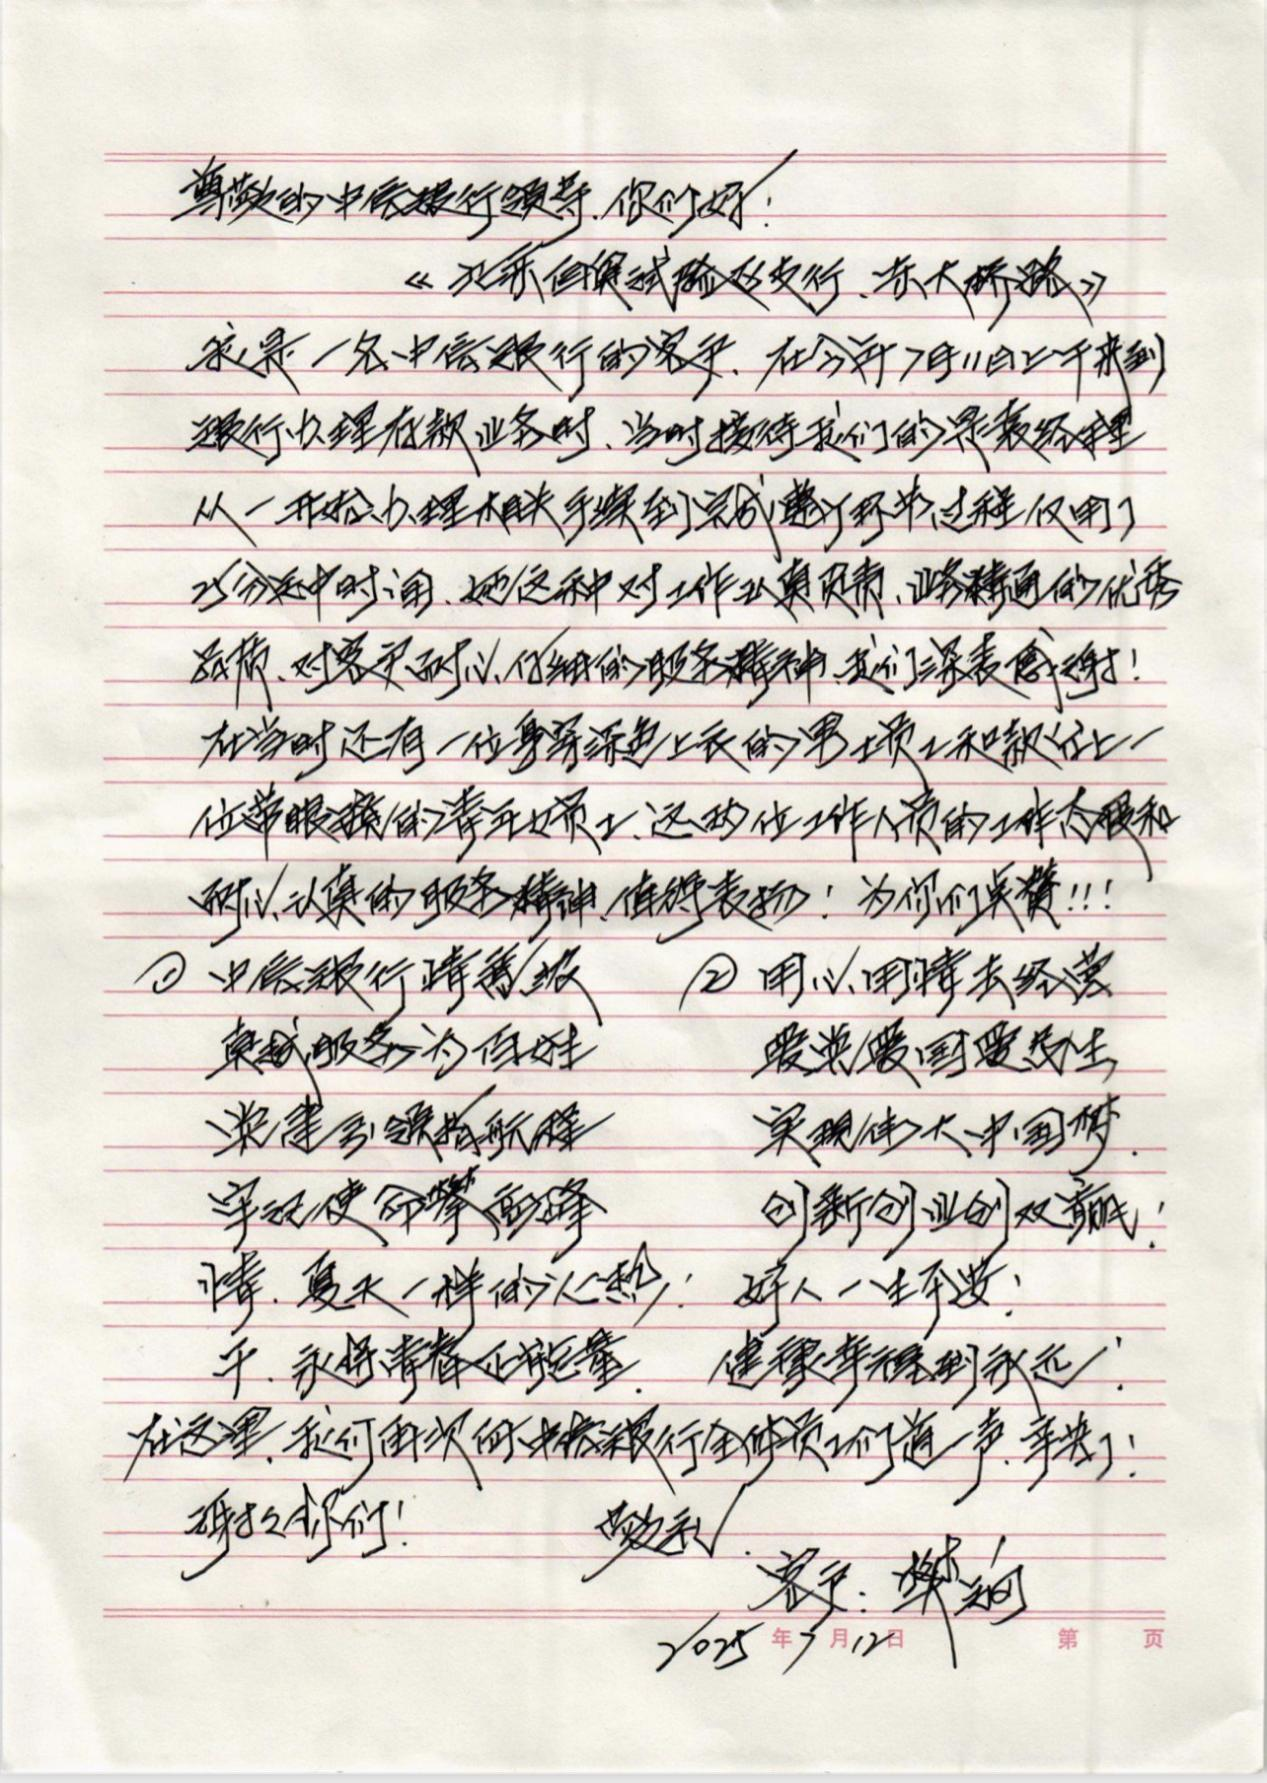 尊敬的中信银行领导、你们好！
《北京自贸试验区支行、东大桥路》
我是一名中信银行的客户、在今年7月11日上午来到
银行办理存款业务时、当时接待我们的是袁经理
从一开始办理相关手续到完成整个环节过程仅用了
25分钟时间、她这种对工作认真负责、业务精通的优秀
品质、对客户耐心、仔细的服务精神、我们深表感谢！
在当时还有一位身穿深色上衣的男士员工和款台上一
位带眼镜的青年女员工、这两位工作人员的工作态度和
耐心、认真的服务精神、值得表扬！为你们点赞！！！
① 中信银行情系 ② 用心用情去经营
卓越服务为百姓 爱党爱国爱民生
党建引领指航程 实现伟大中国梦、
牢记使命攀高峰 创新创业创双赢！
情、夏天一样的心热！ 好人一生平安！
千、永将青春正能量、 健康幸福到永远！
在这里、我们再次向中信银行全体员工们道一声、辛苦了！
谢谢你们！ 敬礼、
客户：
2025年7月12日
第 页